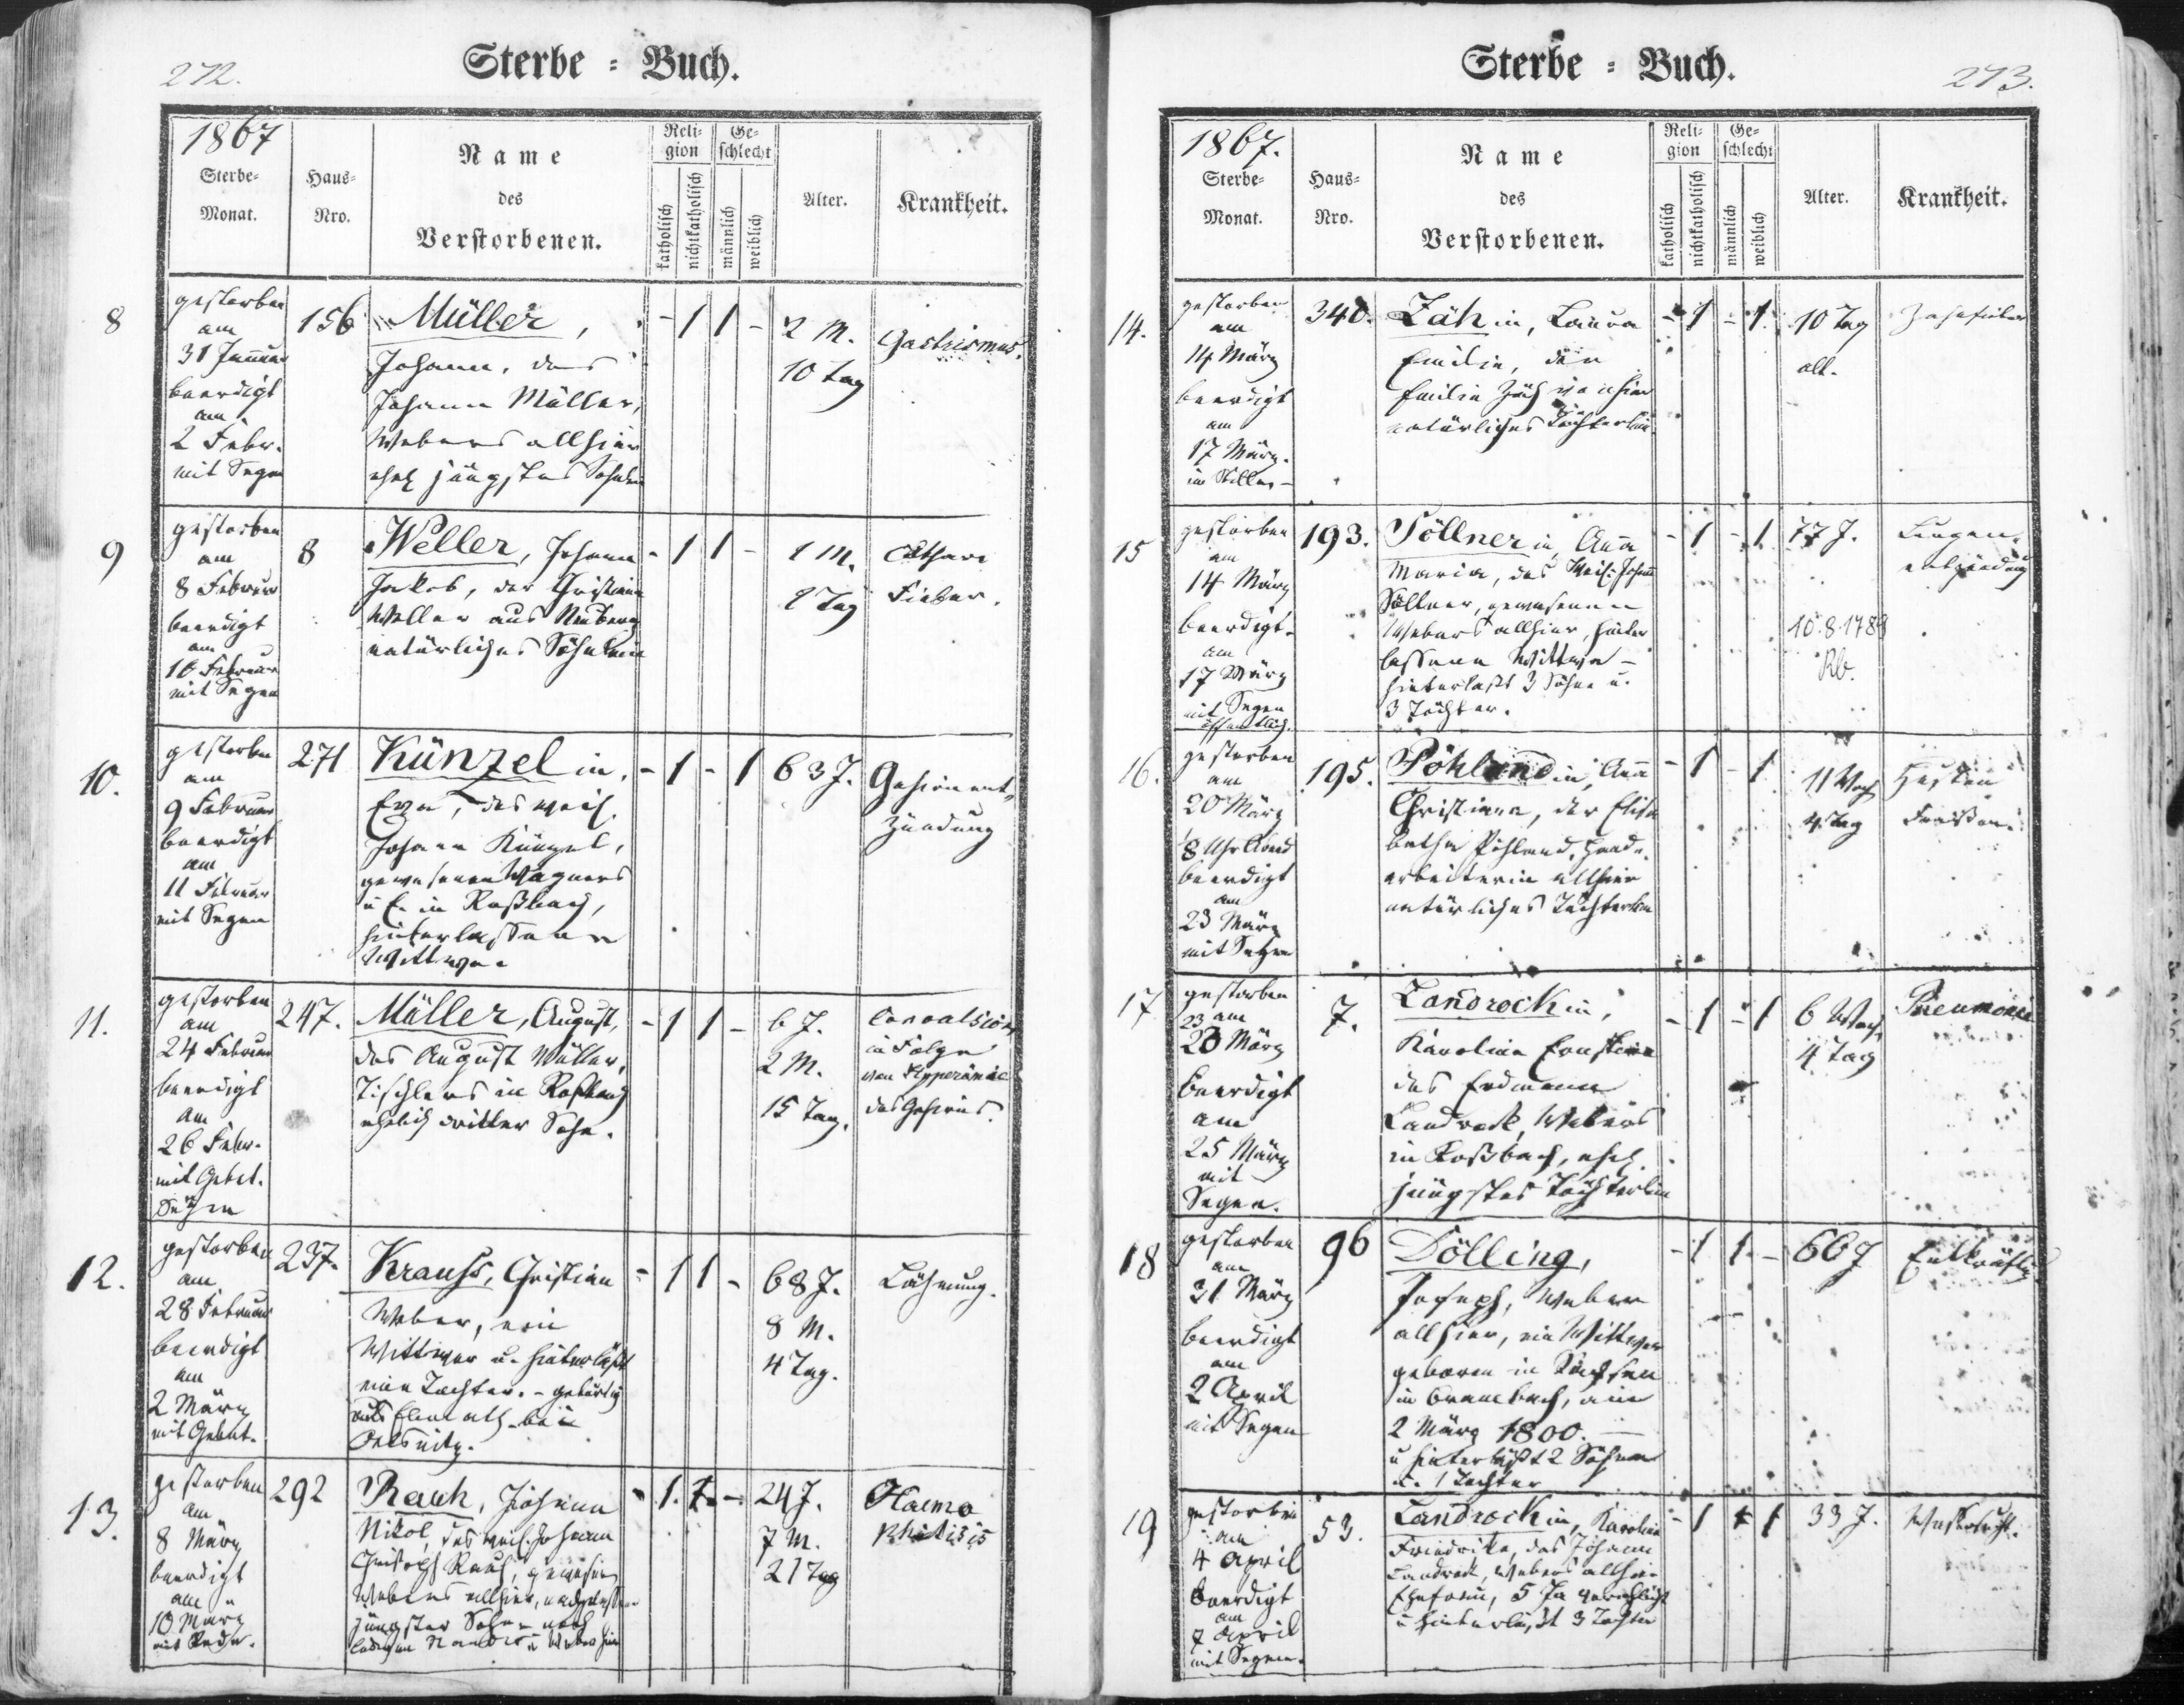 272.
Sterbe = Buch.
1867
Sterbe-
Monat.
Haus-
Nro.
Name
des
Verstorbenen.
Reli-
gion
katholisch
nichtkatholisch
Ge-
schlecht
männlich
weiblich
Alter.
Krankheit.
8
gestorben
am
31 Januar
beerdigt
am
2 Febr.
mit Segen
156
Müller,
Johann, des
Johann Müller,
Webers allhier
ehel jüngstes Söhnlein
- 1 1 -
2 M.
10 Tag
Gastrismus.
9
gestorben
am
8 Februar
beerdigt
am
10 Februar
mit Segen
8
Weller, Johann
Jakob, der Christiane
Weller aus Neuberg
natürliches Söhnlein
- 1 1 -
1 M.
Tag
Cathare
Fieber.
10.
gestorben
am
9 Februar
beerdigt
am
11 Februar
mit Segen
271
Künzel in,
Eva, des weil.
Johann Künzel,
gewesenen Wagners
in Roßbach,
hinterlassene
Wittwe.
- 1 - 1
63 J.
Gehirnent-
zündung
11.
gestorben
am
24 Februar
beerdigt
am
26 Febr.
mit Gebet.
Segen
247.
Müller, August,
des August Müller,
Tischlers in Roßbach
ehelich dritter Sohn.
- 1 1 -
6 J.
2 M.
15 Tag.
Convulsion
in Folge
von Hyperämie
des Gehirns.
12.
gestorben
am
28 Februar
beerdigt
am
2 März
mit Gebet.
237.
Krauss, Christian
Weber, ein
Wittwer u. hinterläßt
eine Tochter. - gebürtig
aus bei
Oelsnitz.
- 1 1 -
68 J.
8 M.
4 Tag.
Lähmung.
13.
gestorben
am
8 März
beerdigt
am
10 März
mit Rede.
292
Rauh, Johann
Nikol, des weil. Johann
Christoph Rauh, gewesenen
Webers allhier,
jüngster Sohn
- 1. 1. -
24 J.
7 M.
21 Tag
273.
Sterbe = Buch.
1867.
Sterbe-
Monat.
Haus-
Nro.
Name
des
Verstorbenen.
Reli-
gion
katholisch
nichtkatholisch
Ge-
schlecht
männlich
weiblich
Alter.
Krankheit.
14.
gestorben
am
14 März
beerdigt
am
17 März.
im Stillen -
340.
Zäh in, Laura
Emilie, der
Emilie Zäh von hier
natürliches Töchterlein.
- 1 - 1
10 Tag
alt.
15
gestorben
am
14 März
beerdigt
am
17 März
mit Segen
öffentlich.
193.
Söllner in, Anna
Maria, des weil. Johann
Söllner, gewesenen
Webers allhier, hinter
lassene Wittwe -
hinterlaßt 3 Söhne u.
3 Töchter.
- 1 - 1
77 J.
10.8.1789
Rb.
Lungen-
entzündung
16.
gestorben
am
20 März
8 Uhr Abend
beerdigt
am
23 März
mit Segen
195.
Pöhland in, Anna
Christiane, der Elisa
betha Pöhland, Hand-
arbeiterin allhier
natürliches Töchterlein
- 1 - 1
11 Woch
4 Tag
Husten
Fraisen.
17
gestorben
23 am
23 März
beerdigt
am
25 März
mit
Segen.
7.
Landrock in,
Karoline Ernstine
des Erdmann
Landrock, Webers
in Roßbach, ehel.
jüngstes Töchterlein
- 1 - 1
6 Woch,
4 Tag
Pneumonie
18
gestorben
am
31 März
beerdigt
am
2 April
mit Segen
96
Dölling,
Joseph, Weber
allhier, ein Wittwer
geboren in Sachsen
in Brambach, am
2 März 1800. -
u hinterläßt 2 Söhne
u. 1 Tochter
- 1 1 -
66 J
Entkräftg.
19
gestorben
am
4 April
beerdigt
am
7 April
mit Segen.
53.
Landrock in, Karoline
Friedrike, des Johann
Landrock, Webers allhier
Ehefrau, 5 Ja verehlicht
u hinterläßt 3 Töchter
- 1 1 1
33 J.
Wassersucht.